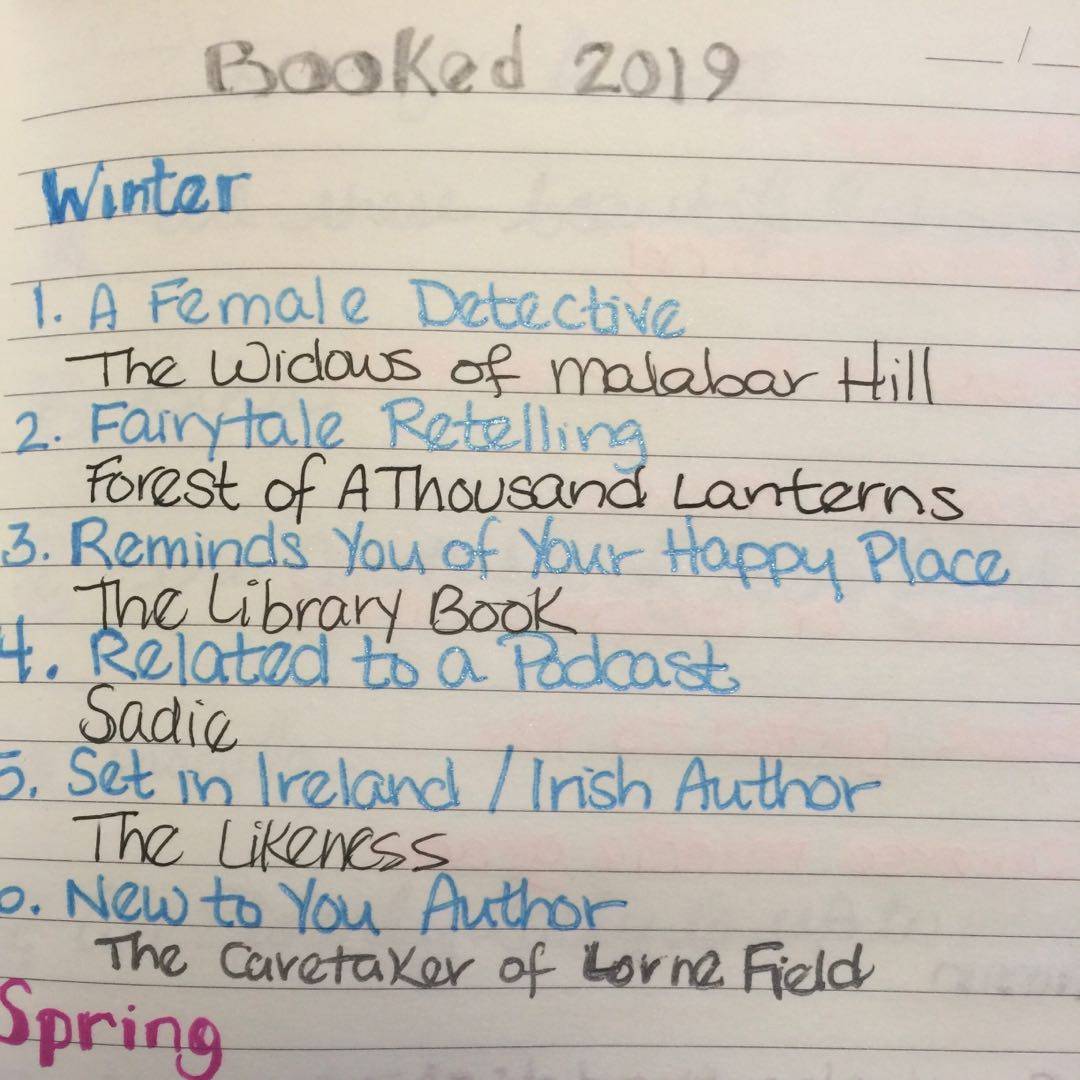 Booked 2019
Winter
1. A Female Detective
The Widows of Malabar Hill
2. Fairytale Retelling
Forest of A Thousand Lanterns
3. Reminds You of Your Happy Place
The Library Book
4. Related to a Podcast
Sadie
5. Set in Ireland / Irish Author
The Likeness
6. New to You Author
The Caretaker of Lorne Field
Spring